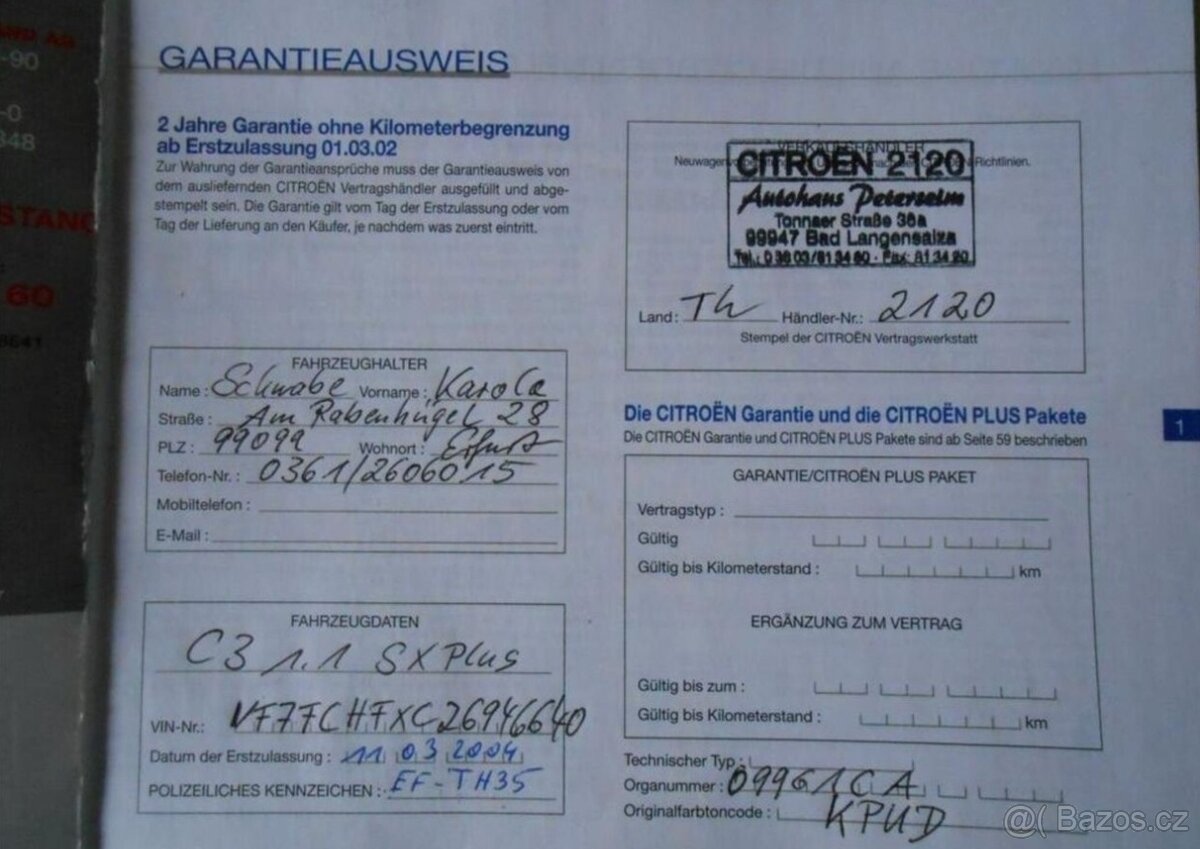 GARANTIEAUSWEIS
2 Jahre Garantie ohne Kilometerbegrenzung
ab Erstzulassung 01.03.02
Zur Wahrung der Garantieansprüche muss der Garantieausweis von
dem ausliefernden CITROËN Vertragshändler ausgefüllt und abge-
stempelt sein. Die Garantie gilt vom Tag der Erstzulassung oder vom
Tag der Lieferung an den Käufer, je nachdem was zuerst eintritt.
FAHRZEUGHALTER
Name : Schwabe Vorname : Karola
Straße : Am Rabenhügel 28
PLZ : 99099 Wohnort : Erfurt
Telefon-Nr. : 0361/2606015
Mobiltelefon :
E-Mail :
FAHRZEUGDATEN
C3 1.1 SX Plus
VIN-Nr.: VF7FCHFXC26946640
Datum der Erstzulassung : 11 03 2004
POLIZEILICHES KENNZEICHEN : EF-TH35
VERKAUFSHÄNDLER
Richtlinien.
CITROËN 2120
Autohaus Peterseim
Tonnaer Straße 36a
99947 Bad Langensalza
Land : Th Händler-Nr.: 2120
Stempel der CITROËN Vertragswerkstatt
Die CITROËN Garantie und die CITROËN PLUS Pakete
Die CITROËN Garantie und CITROËN PLUS Pakete sind ab Seite 59 beschrieben
GARANTIE/CITROËN PLUS PAKET
Vertragstyp :
Gültig
Gültig bis Kilometerstand : km
ERGÄNZUNG ZUM VERTRAG
Gültig bis zum :
Gültig bis Kilometerstand : km
Technischer Typ :
Organummer : 09961CA
Originalfarbtoncode : KPUD
1
-90
-0
348
STANG
60
8641
@( Bazos.cz